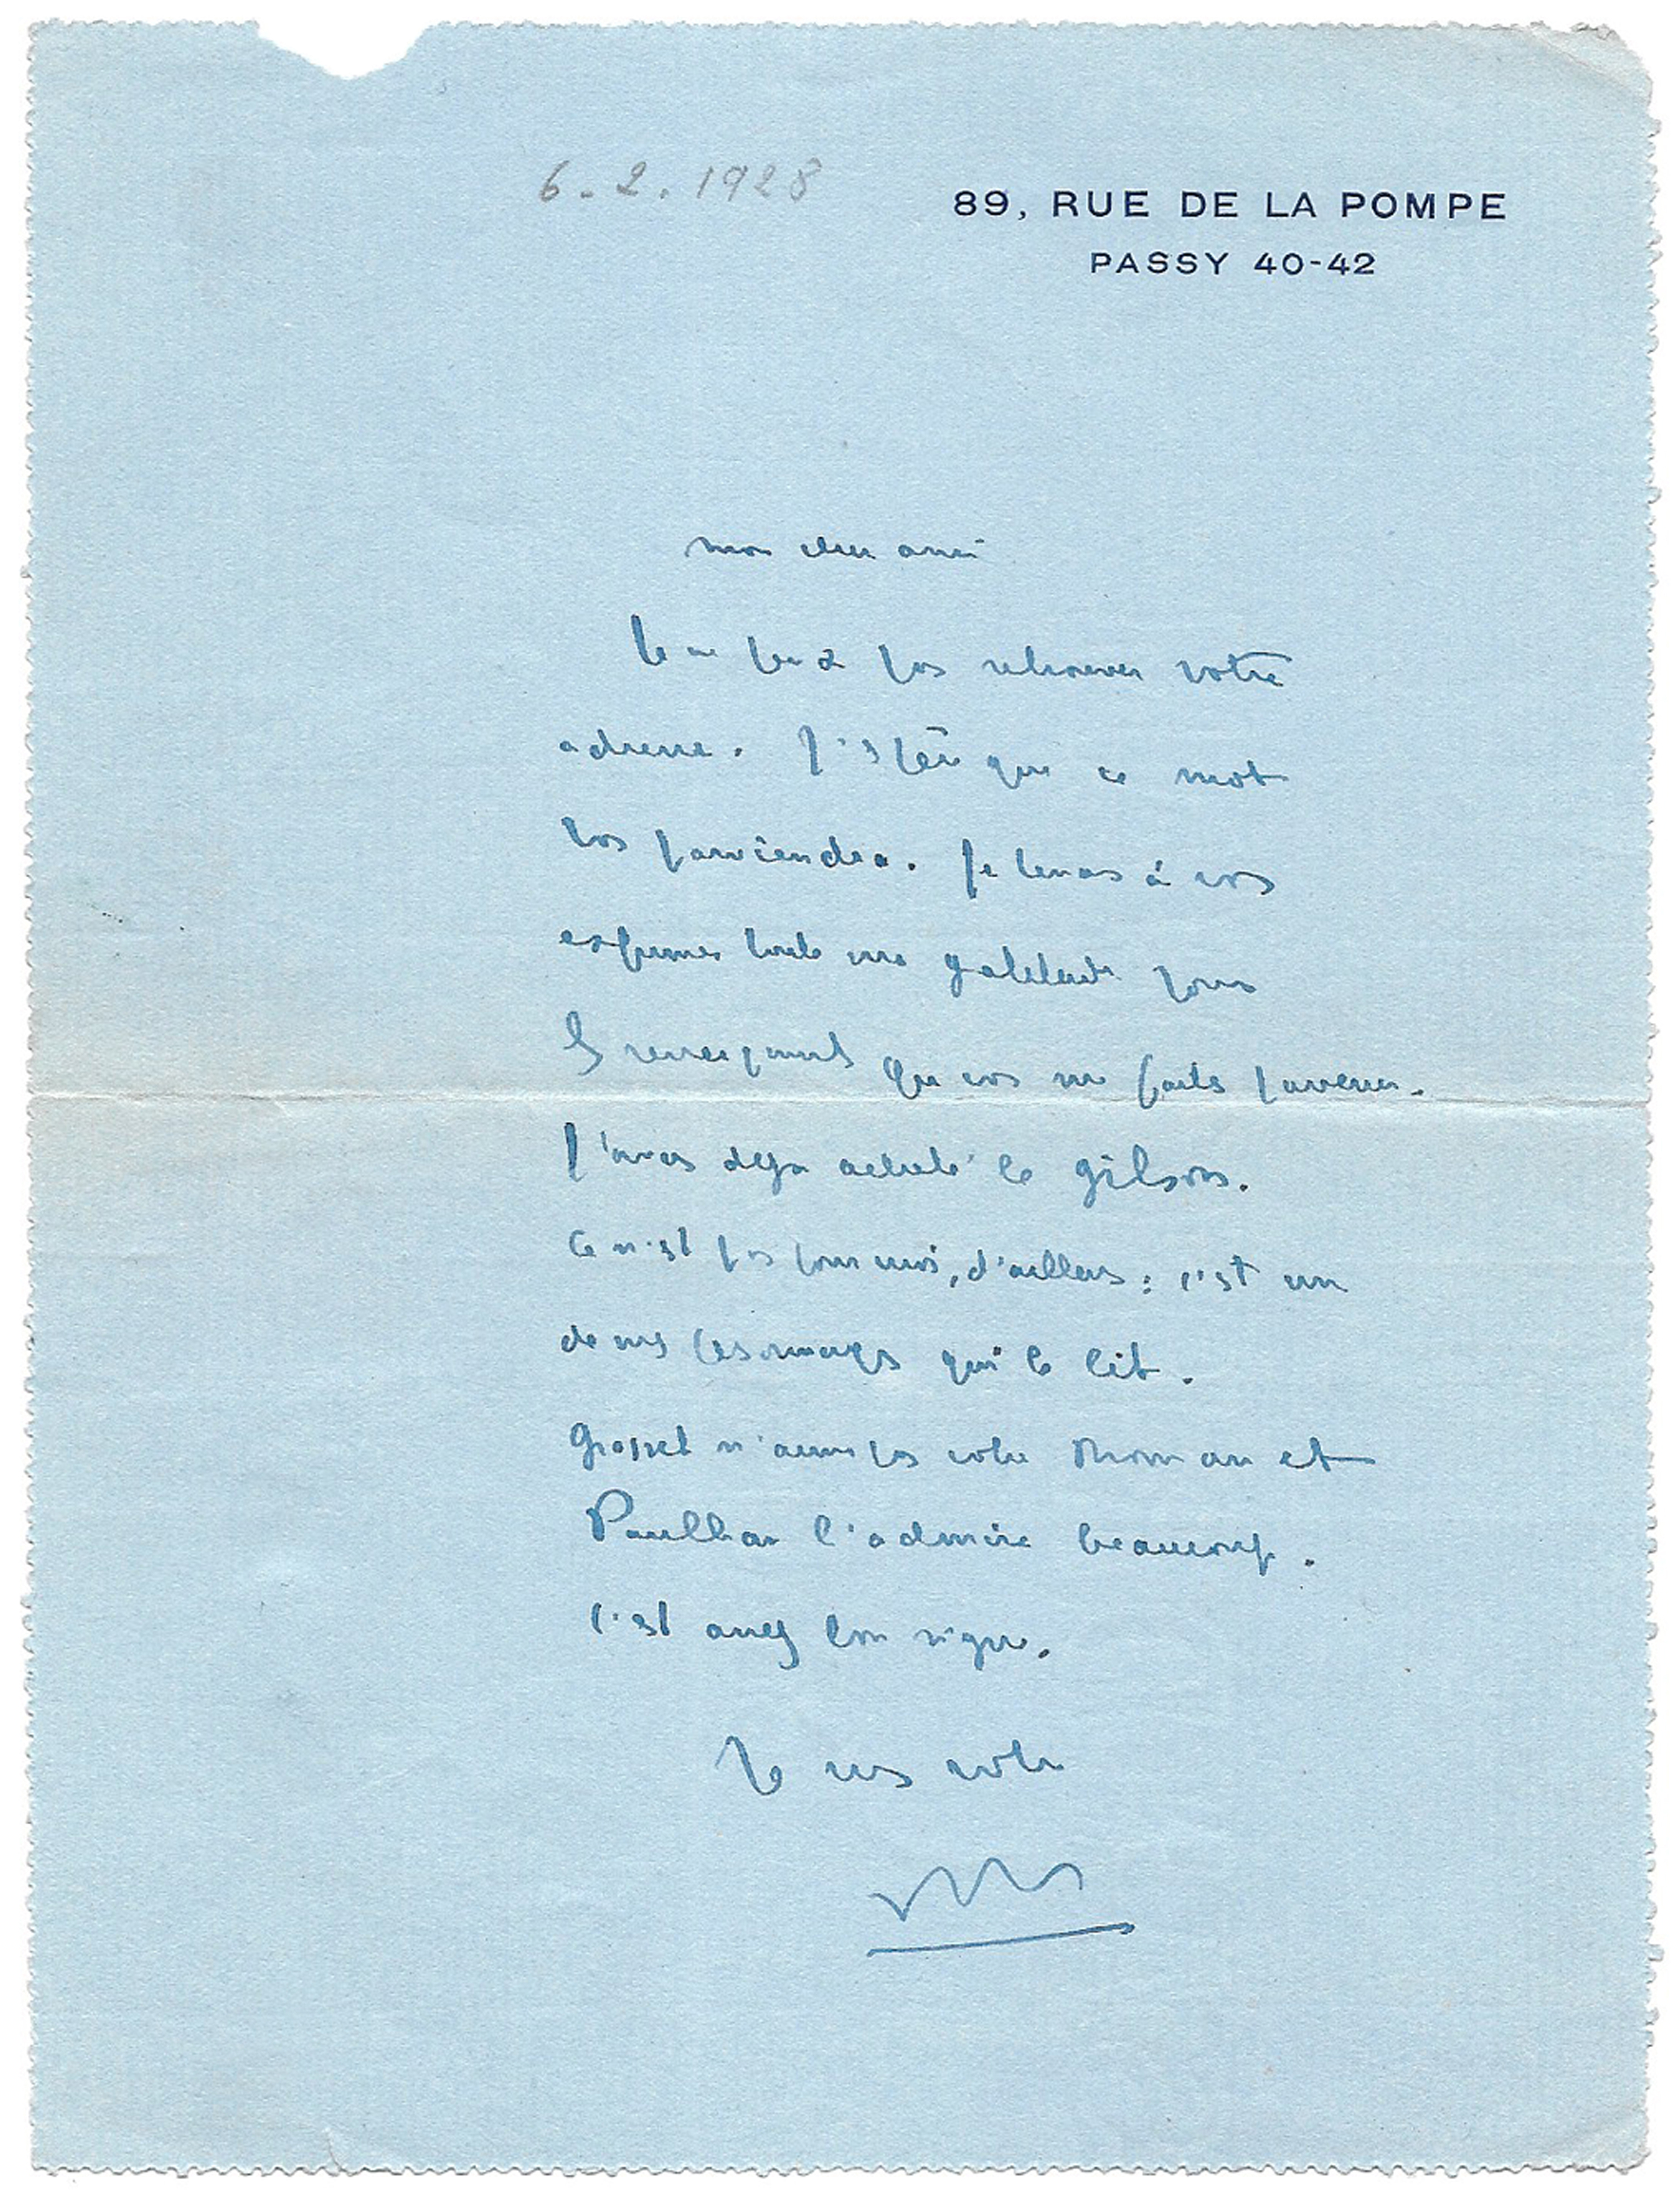 6-2.1928
89, RUE DE LA POMPE
PASSY 40-42
mon cher ami
Je ne peux pas retrouver votre
adresse. J'espère que ce mot
vous parviendra. Je tenais à vous
exprimer toute ma gratitude pour
les renseignements que vous me faites parvenir.
J'avais déjà acheté le Gilson.
Ce n'est pas pour moi, d'ailleurs : c'est un
de mes personnages qui le lit.
Grasset n'aime pas votre roman et
Paulhan l'admire beaucoup.
C'est assez bon signe.
Je suis votre